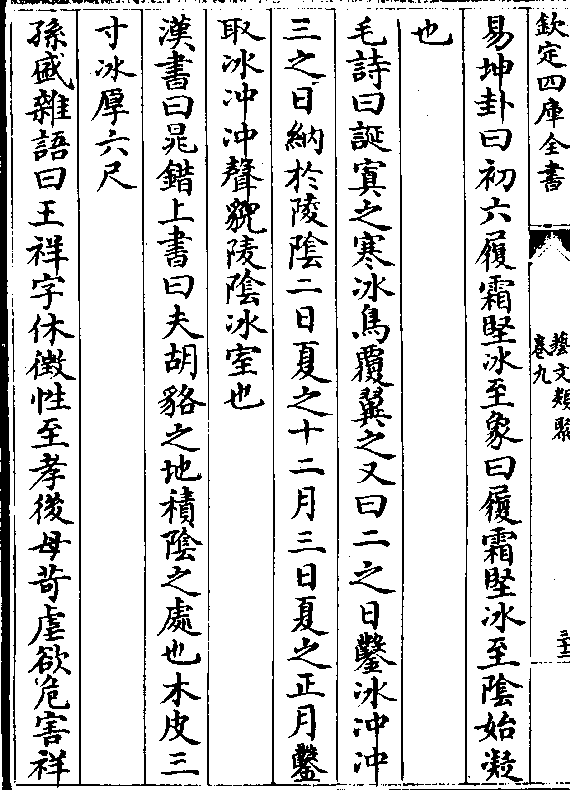 欽定四庫全書
藝文類聚
卷九
三十二
易坤卦曰初六履霜堅冰至象曰履霜堅冰至陰始凝
也
毛詩曰誕寘之寒冰鳥覆翼之又曰二之日鑿冰冲冲
三之日納於陵陰二日夏之十二月三日夏之正月鑿
取冰冲冲聲貌陵陰冰室也
漢書曰晁錯上書曰夫胡貉之地積陰之處也木皮三
寸冰厚六尺
孫盛雜語曰王祥字休徵性至孝後母苛虐欲危害祥